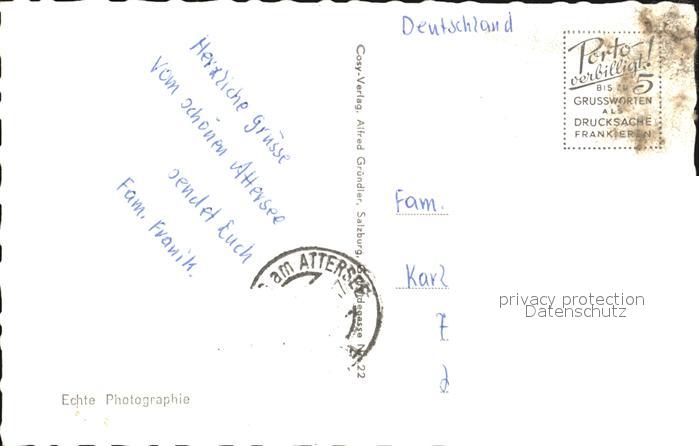 Herzliche Grüsse
vom schönen Attersee
sendet Euch
Fam. Franik.
Echte Photographie
Cosy-Verlag, Alfred Gründler, Salzburg,
am ATTERSEE
Deutschland
Porto
verbilligt!
BIS ZU 5
GRUSSWORTEN
ALS
DRUCKSACHE
FRANKIEREN
Fam.
Karl
privacy protection
Datenschutz